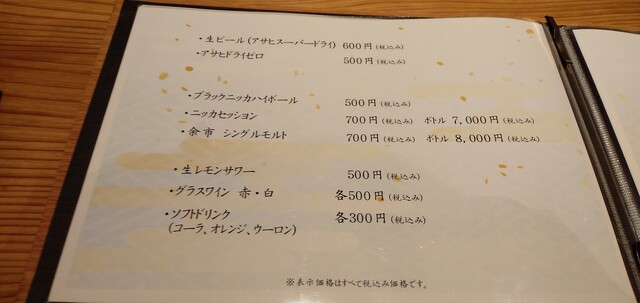 ・生ビール(アサヒスーパードライ) 600円(税込み)
・アサヒドライゼロ 500円(税込み)
・ブラックニッカハイボール 500円(税込み)
・ニッカセッション 700円(税込み) ボトル 7,000円(税込み)
・余市 シングルモルト 700円(税込み) ボトル 8,000円(税込み)
・生レモンサワー 500円(税込み)
・グラスワイン 赤・白 各500円(税込み)
・ソフトドリンク 各300円(税込み)
(コーラ、オレンジ、ウーロン)
※表示価格はすべて税込み価格です。